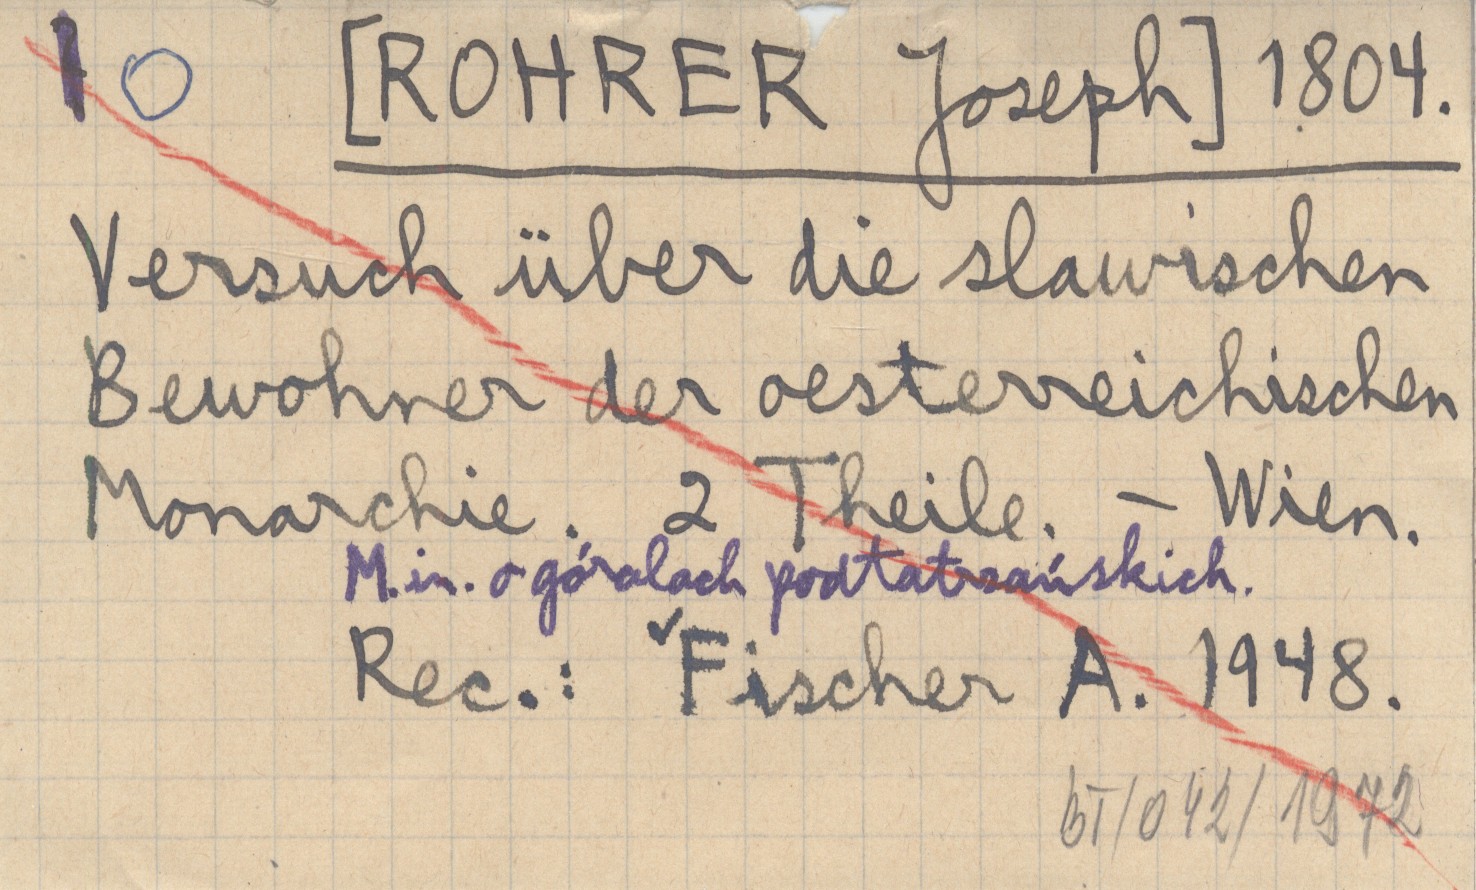 I O [ROHRER Joseph] 1804.
Versuch über die slawischen
Bewohner der oesterreichischen
Monarchie. 2 Theile. – Wien.
M.in. o góralach podtatrzańskich.
Rec.: ✓Fischer A. 1948.
BT/042/1972